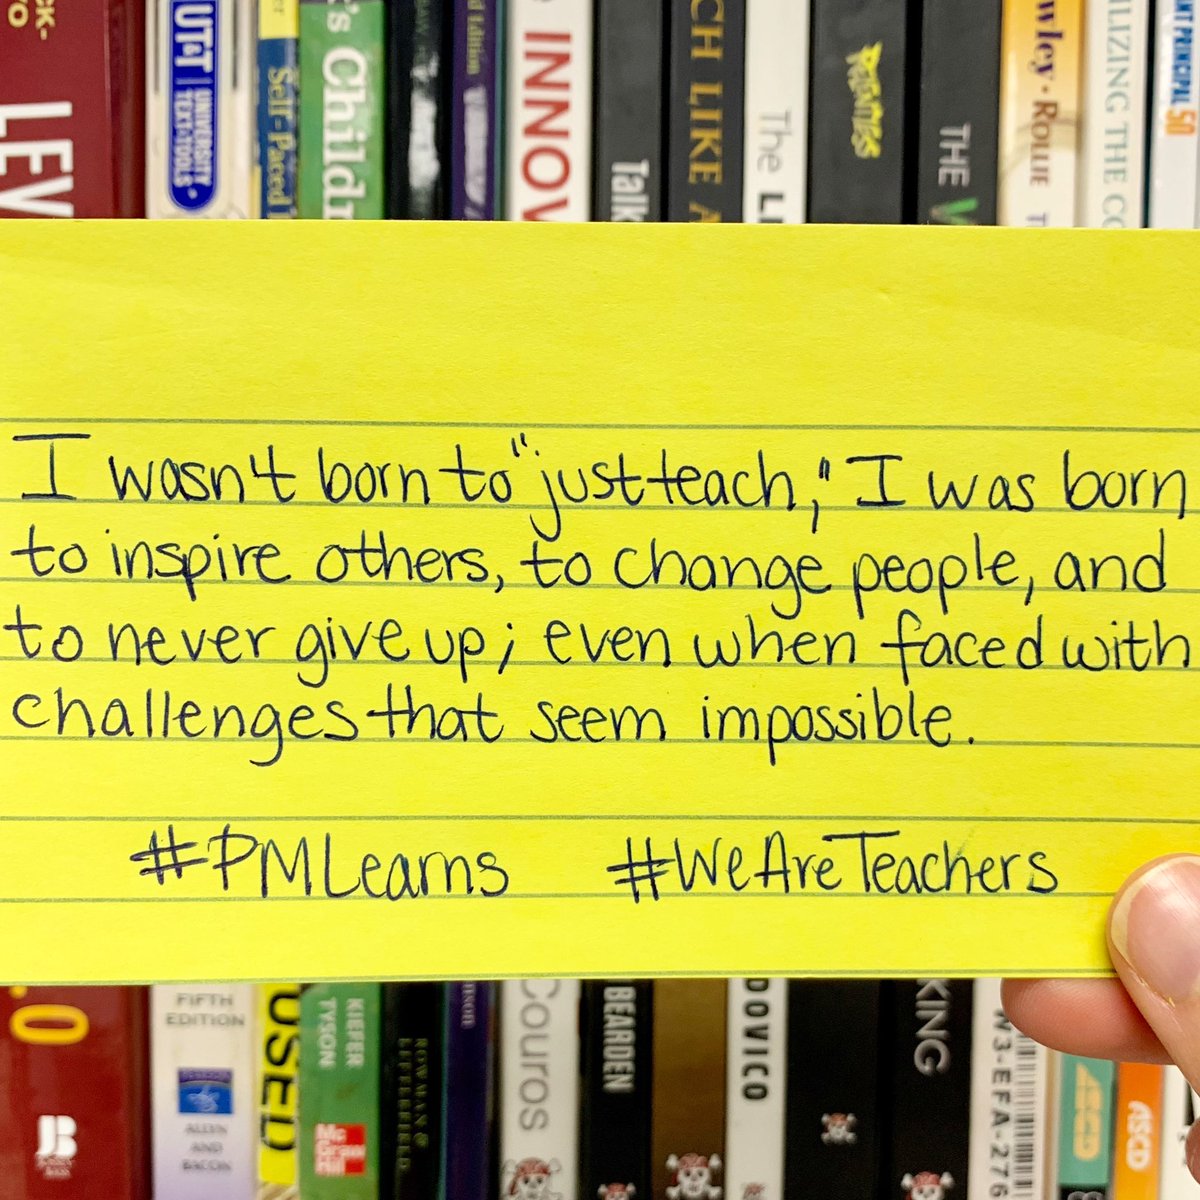 LEV
UT&T
UNIVERSITY
TEXT-TOOLS
Self-Paced
's Childr
INNOV
Talk
CH LIKE A
The LI
THE
wley · Rollie
LIZING THE CO
NT PRINCIPAL 50
I wasn't born to "just teach," I was born
to inspire others, to change people, and
to never give up; even when faced with
challenges that seem impossible.
#PMLearns #WeAreTeachers
.0
JB
FIFTH
EDITION
ALLYN
AND
BACON
USED
KIEFER
TYSON
Mc
Graw
Hill
ROWMAN &
LITTLEFIELD
COUROS
BEARDEN
DOVICO
KING
W3-EFA-276
ASCD
ASCD